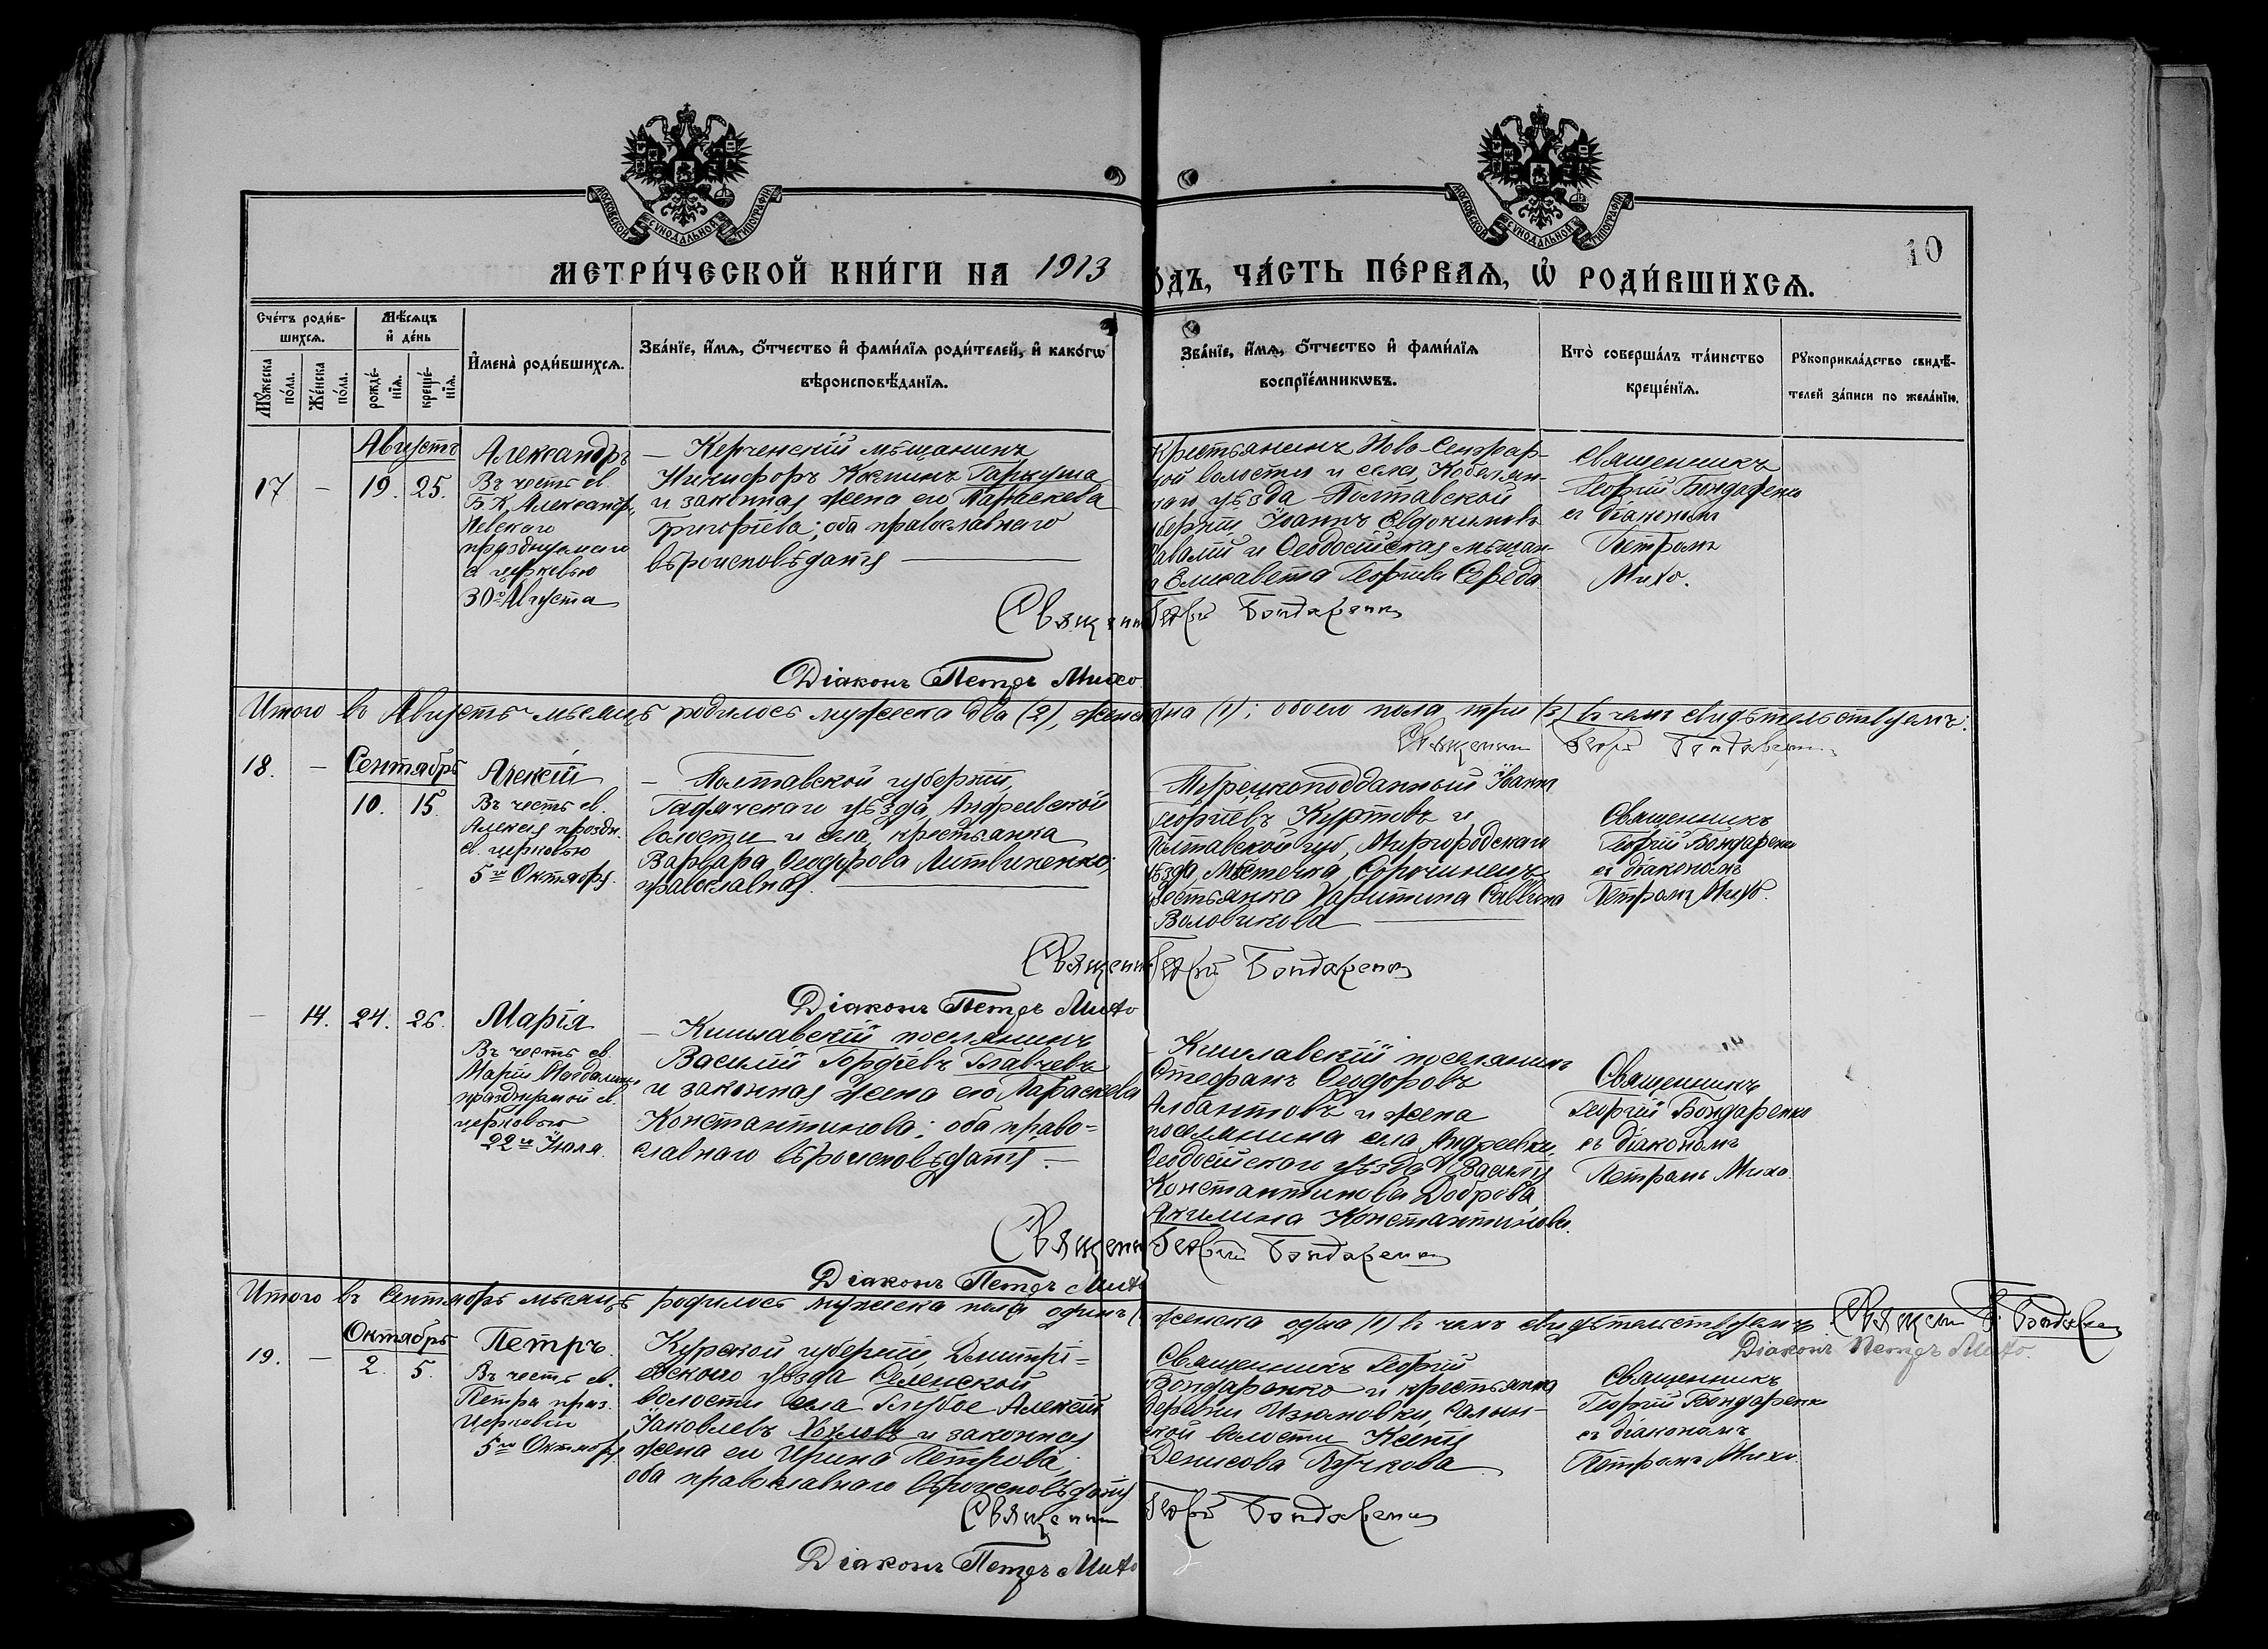 МОСКОВСКОЙ СѴНОДАЛЬНОЙ ТИПОГРАФІИ
МОСКОВСКОЙ СѴНОДАЛЬНОЙ ТИПОГРАФІИ
10
МЕТРИ́ЧЕСКОЙ КНИ́ГИ НА 1913
ОДЪ, ЧА́СТЬ ПЕ́РВАѦ, Ѡ҆ РОДИ́ВШИХСѦ.
Сче́тъ роди́в-
шихсѧ.
Мꙋ́жеска по́ла.
Же́нска по́ла.
Мѣ́сѧцъ
и҆ де́нь
рожде́-
нїѧ.
креще́-
нїѧ.
И҆мена̀ роди́вшихсѧ.
Зва́нїе, и҆́мѧ, ѻ҆́тчество и҆ фами́лїѧ роди́телей, и҆ како́гѡ
вѣроисповѣ́данїѧ.
Зва́нїе, и҆́мѧ, ѻ҆́тчество и҆ фами́лїѧ
воспрїе́мникѡвъ.
Кто̀ соверша́лъ та́инство
креще́нїѧ.
Рꙋкоприкла́дство свидѣ́-
телей за́писи по жела́нїю.
Августъ
17 — 19. 25.
Александръ
Въ честь св.
Б. К. Александр.
Невскаго
празднуемаго
св церковью
30го Августа
— Керченскій мѣщанинъ
Никифоръ Гаркуша
и законная жена его Параскева
Григорьева; оба православнаго
вѣроисповѣданія
Крестьянинъ Ново-Сенжар-
ной волости и села, Кобеляк-
наго уѣзда Полтавской
губерніи, Іоаннъ Евдокимовъ
и Ѳеодосійская мѣщан-
а Елисавета Георгіева Середа
Священникъ
Георгій Бондаренко
съ діакономъ
Петромъ
Михо.
Священн Георгій Бондаренко
Діаконъ Петръ Михо
Итого въ Августѣ мѣсяцѣ родилось мужеска два (2), женск дна (1); обоего пола три (3) въ чемъ свидѣтельствуемъ:
Священникъ Георгій Бондаренко
Сентябрь
18. — 10. 15.
Алексій
Въ честь св.
Алексія праздн.
св. церковью
5го Октября.
— Полтавской губерніи,
Гадячскаго уѣзда, Андреевской
волости и села, крестьянка
Варвара Ѳеодорова Литвиненко;
православная.
Турецкоподданный Іоаннъ
Георгіевъ Куртовъ и
Полтавской губ, Миргородскаго
уѣзда, Мѣстечка, Сорочинецъ
крестьянка Харитина Саввина
Воловикова
Священникъ
Георгій Бондаренко
съ діакономъ
Петромъ Михо.
Священн Георгій Бондаренко
Діаконъ Петръ Михо
— 14. 24. 26.
Марія
Въ честь св.
Маріи Магдалины
празднуемой св.
церковью
22го Іюля.
— Кишлавскій поселянинъ
Василій Гордѣевъ Главчевъ
и законная жена его Параскева
Константинова; оба право-
славнаго вѣроисповѣданія.—
— Кишлавскій поселянинъ
Стефанъ Ѳеодоровъ
Албантовъ и жена
поселянина села Андреевки,
Ѳеодосійскаго уѣзда Василія
Константинова Доброва
Акилина Константинова.
Священникъ
Георгій Бондаренко
съ діакономъ
Петромъ Михо
Священн Георгій Бондаренко
Діаконъ Петръ Михо
Итого въ Сентябрѣ мѣсяцѣ родилось мужеска пола одинъ (1 женска одна (1) въ чемъ свидѣтельствуемъ: Священ Г. Бондаренко
Діаконъ Петръ Михо.
Октябрь
19. — 2. 5.
Петръ.
Въ честь св.
Петра праз.
Церковью
5го Октября
Курской губерніи, Дмитрі-
евскаго уѣзда Селенской
волости села Глубое Алексій
Іаковлевъ Хохловъ и законная
жена его Ирина Петрова;
оба православнаго вѣроисповѣданія
Священникъ Георгій
Бондаренко и крестьянка
деревни Изюмовки, Салын-
ской волости Ксенія
Денисова Пучкова
Священникъ
Георгій Бондаренко
съ діакономъ
Петромъ Михо
Священн Георгій Бондаренко
Діаконъ Петръ Михо